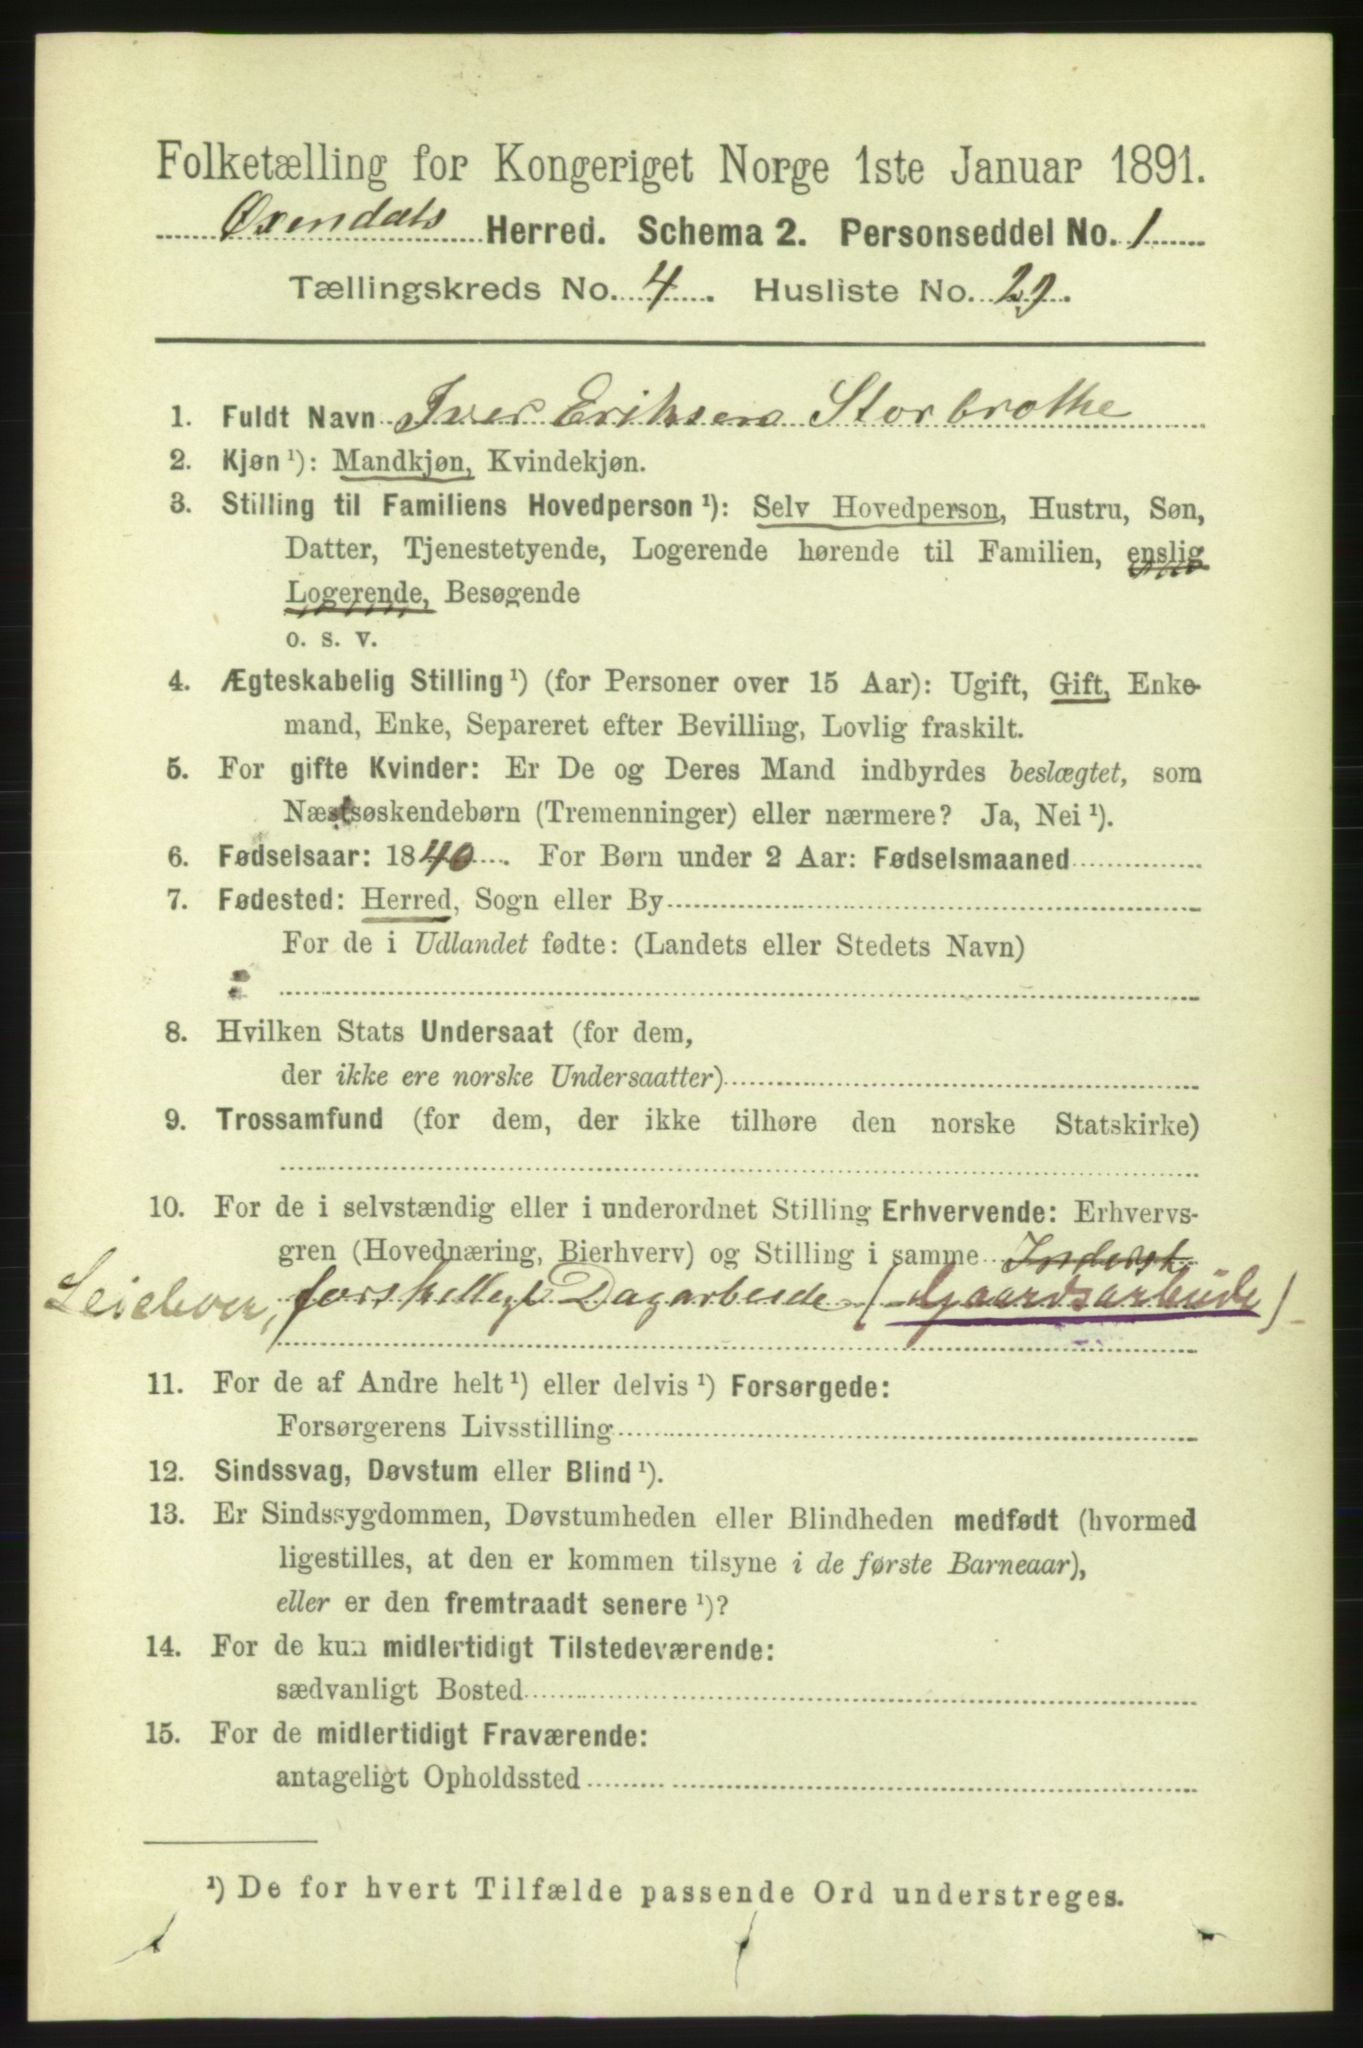 Folketælling for Kongeriget Norge 1ste Januar 1891.
Øxendals Herred. Schema 2. Personseddel No. 1
Tællingskreds No. 4. Husliste No. 29.
1. Fuldt Navn Iver Eriksen Storbrothe
2. Kjøn ¹): Mandkjøn, Kvindekjøn.
3. Stilling til Familiens Hovedperson ¹): Selv Hovedperson, Hustru, Søn,
Datter, Tjenestetyende, Logerende hørende til Familien, enslig
Logerende, Besøgende
o. s. v.
4. Ægteskabelig Stilling ¹) (for Personer over 15 Aar): Ugift, Gift, Enke-
mand, Enke, Separeret efter Bevilling, Lovlig fraskilt.
5. For gifte Kvinder: Er De og Deres Mand indbyrdes beslægtet, som
Næstsøskendebørn (Tremenninger) eller nærmere? Ja, Nei ¹).
6. Fødselsaar: 1840. For Børn under 2 Aar: Fødselsmaaned
7. Fødested: Herred, Sogn eller By
For de i Udlandet fødte: (Landets eller Stedets Navn)
8. Hvilken Stats Undersaat (for dem,
der ikke ere norske Undersaatter)
9. Trossamfund (for dem, der ikke tilhøre den norske Statskirke)
10. For de i selvstændig eller i underordnet Stilling Erhvervende: Erhvervs-
gren (Hovednæring, Bierhverv) og Stilling i samme Inderst,
Leieboer, forskelligt Dagarbeide (Gaardsarbeide)
11. For de af Andre helt ¹) eller delvis ¹) Forsørgede:
Forsørgerens Livsstilling
12. Sindssvag, Døvstum eller Blind ¹).
13. Er Sindssygdommen, Døvstumheden eller Blindheden medfødt (hvormed
ligestilles, at den er kommen tilsyne i de første Barneaar),
eller er den fremtraadt senere ¹)?
14. For de kun midlertidigt Tilstedeværende:
sædvanligt Bosted
15. For de midlertidigt Fraværende:
antageligt Opholdssted
¹) De for hvert Tilfælde passende Ord understreges.